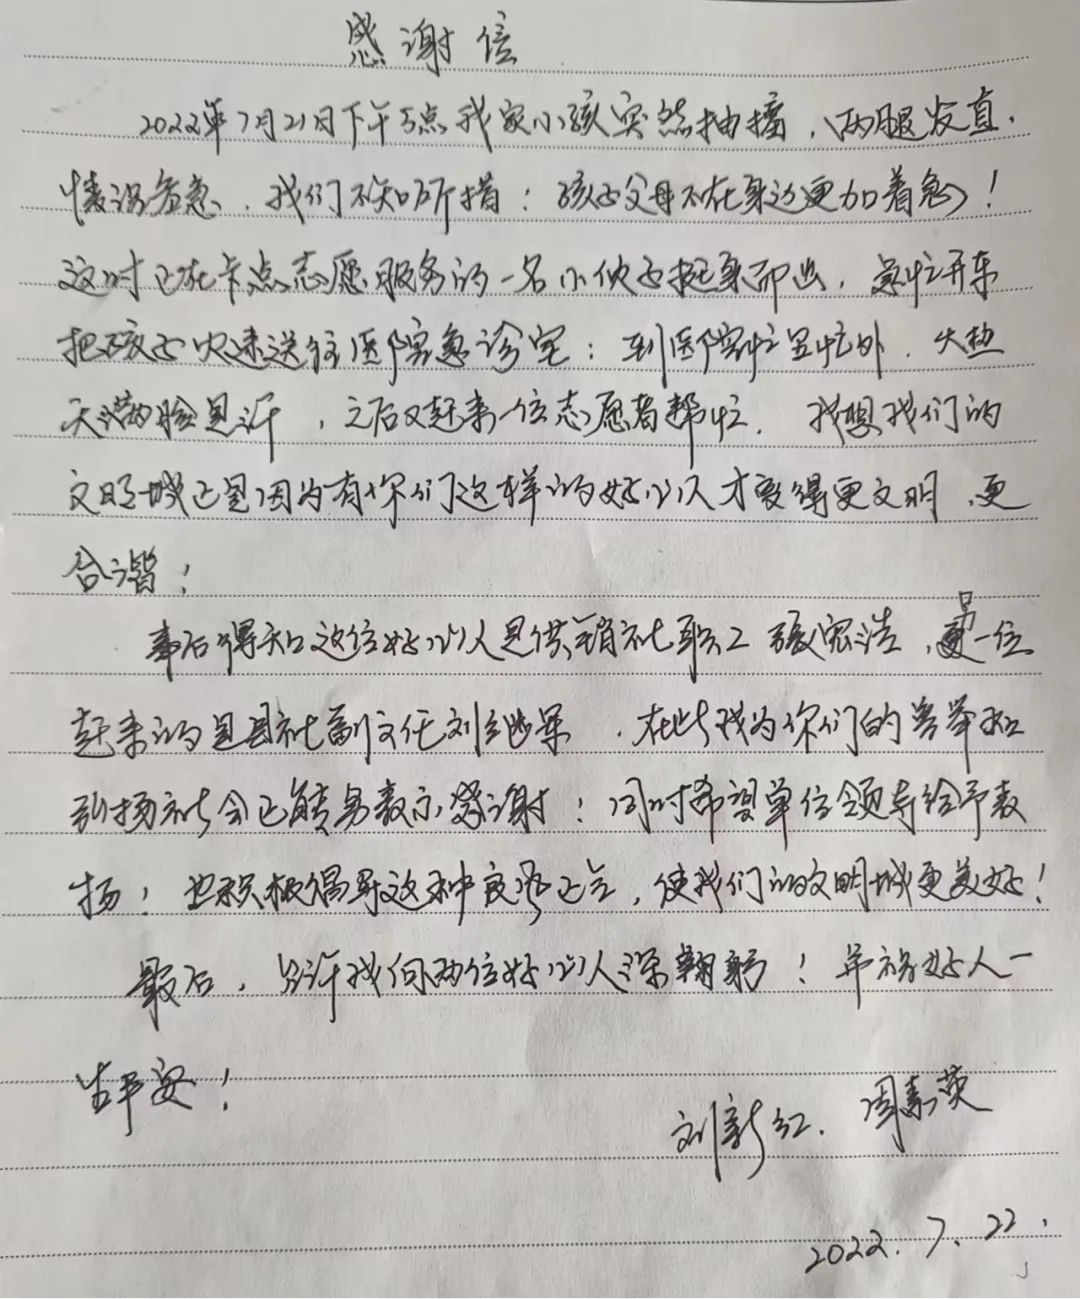 感谢信
2022年7月21日下午5点我家小孩突然抽搐,两腿发直,
情况危急,我们不知所措!孩子父母不在身边更加着急!
这时正在卡点志愿服务的一名小伙子挺身而出,急忙开车
把孩子火速送往医院急诊室!到医院忙里忙外,大热
天满脸是汗,之后又赶来一位志愿者帮忙.我想我们的
文明城正是因为有你们这样的好心人才变得更文明,更
合谐!
事后得知这位好心人是供销社职工张宪浩,另一位
赶来的是县社副主任刘继军,在此我为你们的善举和
弘扬社会正能量表示感谢!同时希望单位领导给予表
扬!也积极倡导这种良风正气,使我们的文明城更美好!
最后,允许我向两位好心人深鞠躬!并祝好人一
生平安!
刘新红、周素英
2022.7.22.